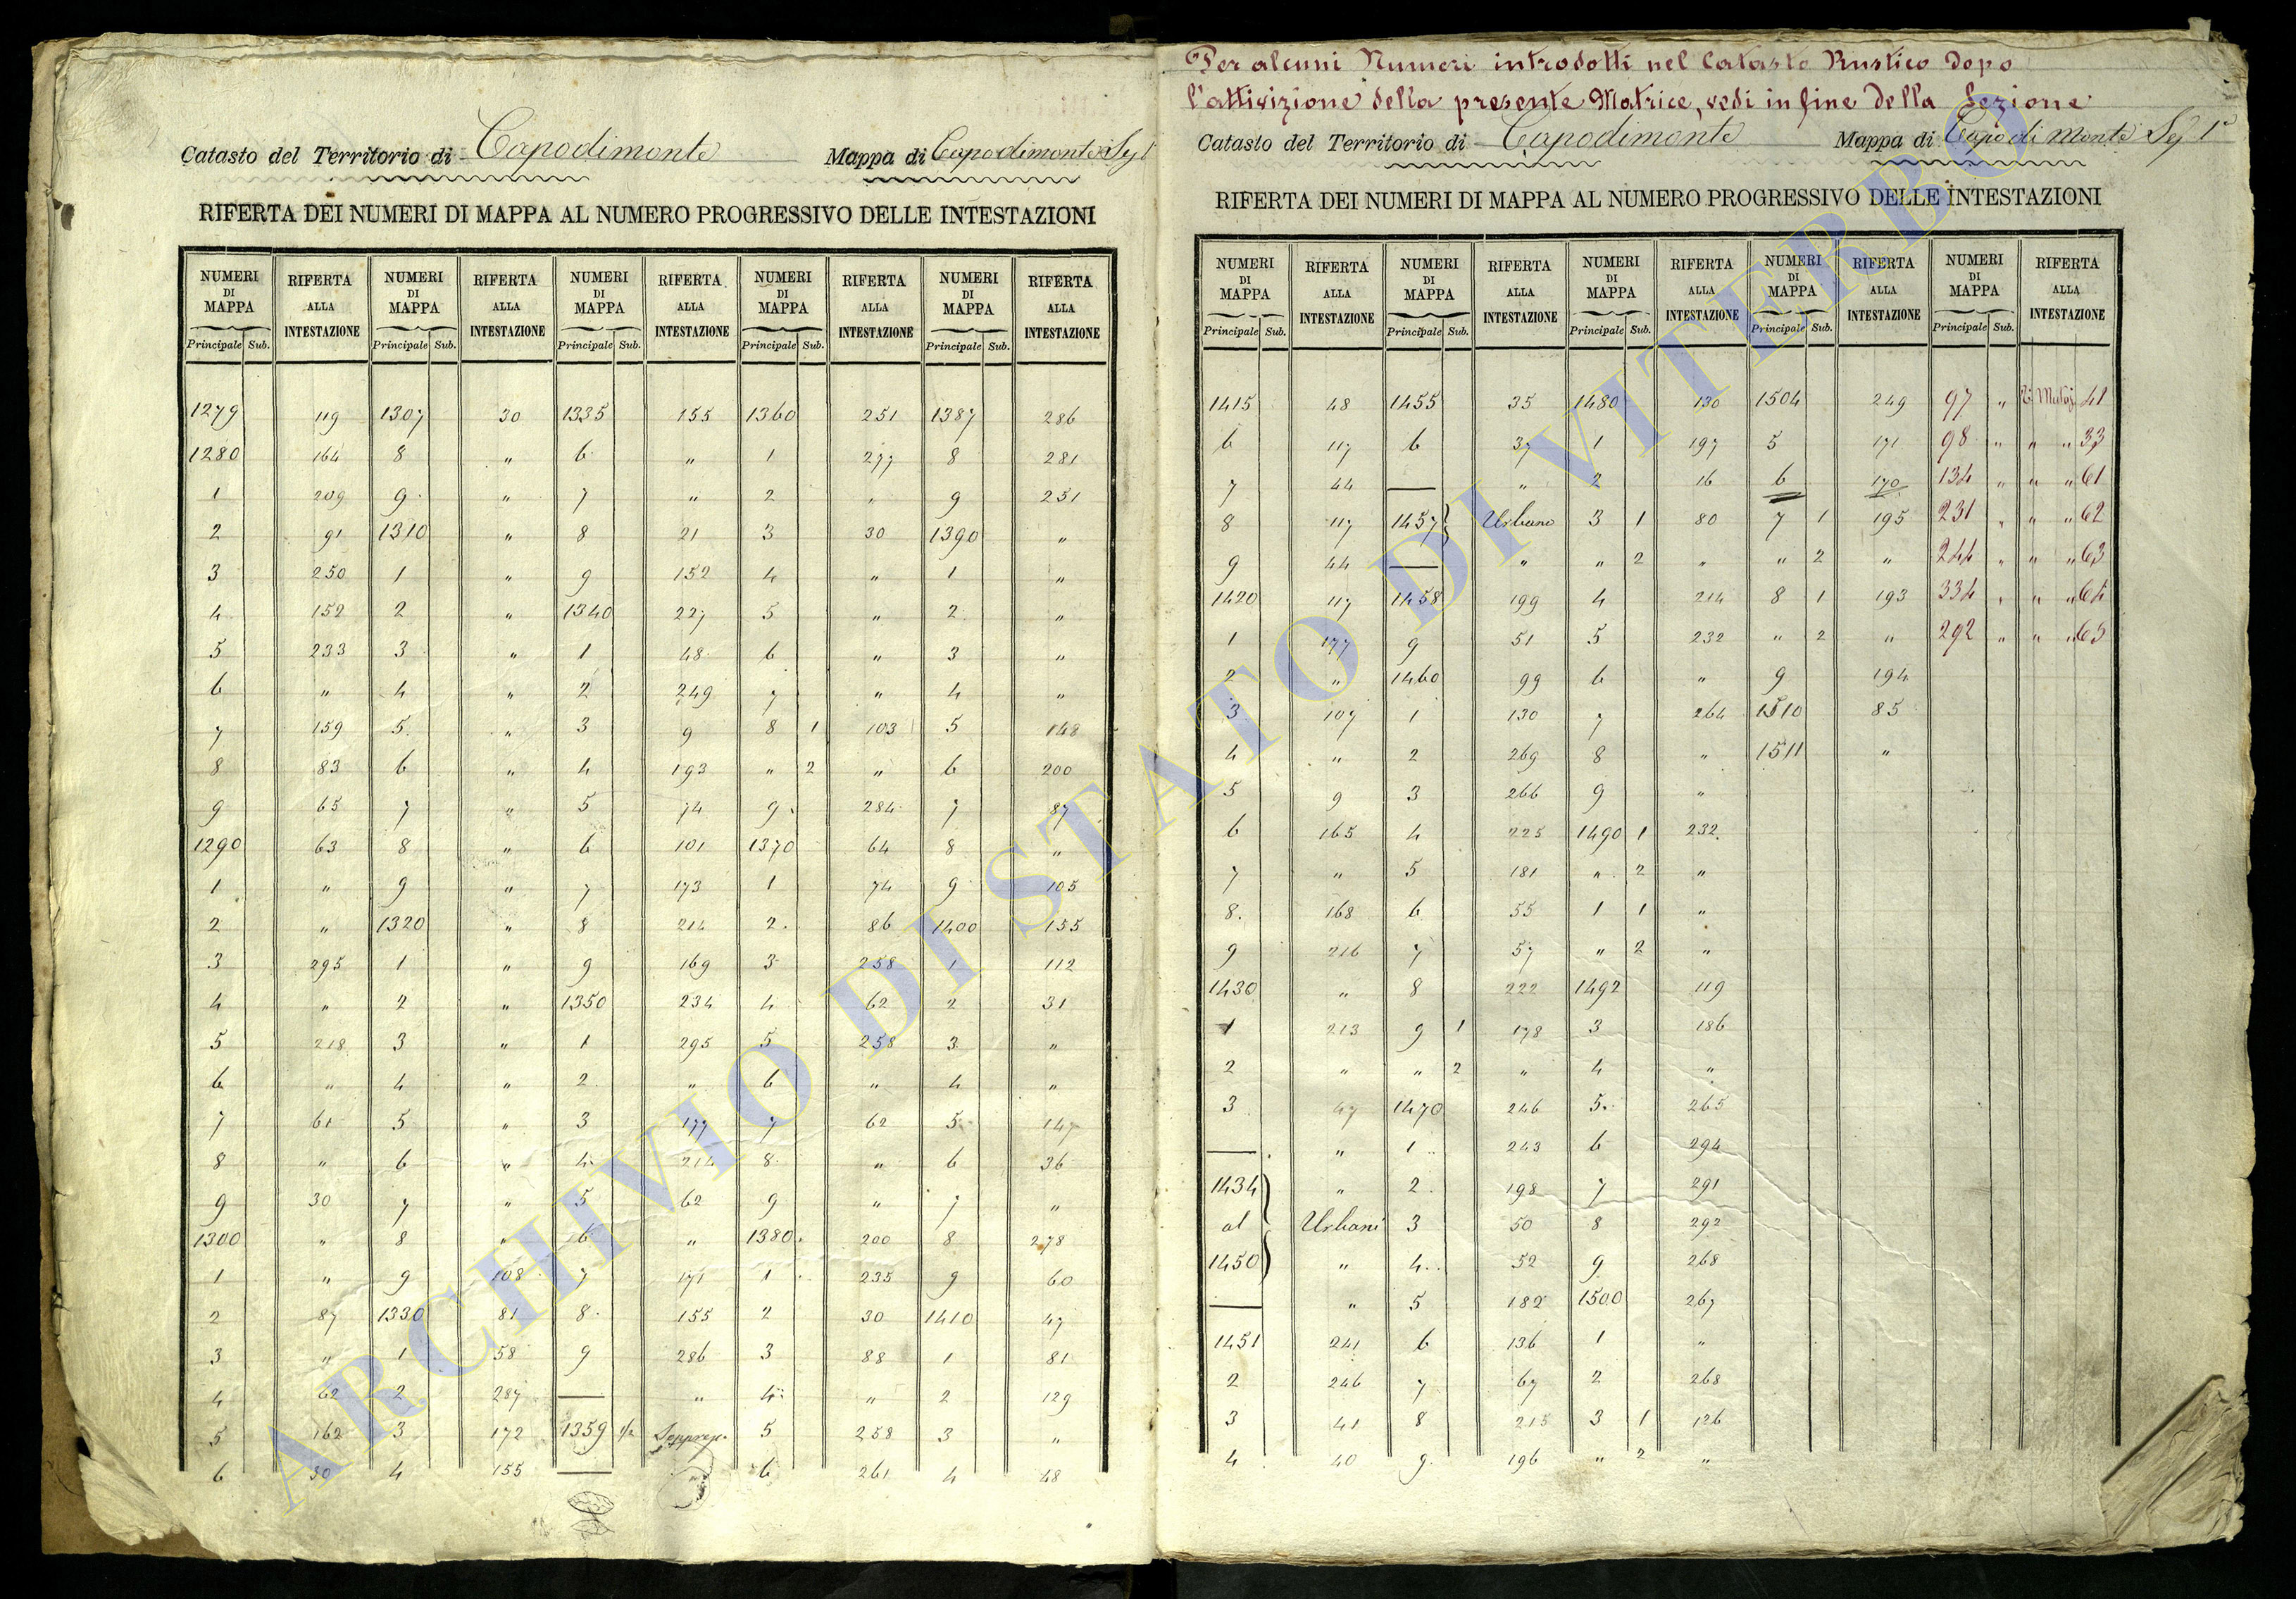 Catasto del Territorio di Capodimonte Mappa di Capodimonte Sez 1
RIFERTA DEI NUMERI DI MAPPA AL NUMERO PROGRESSIVO DELLE INTESTAZIONI
NUMERI DI MAPPA RIFERTA ALLA INTESTAZIONE NUMERI DI MAPPA RIFERTA ALLA INTESTAZIONE NUMERI DI MAPPA RIFERTA ALLA INTESTAZIONE NUMERI DI MAPPA RIFERTA ALLA INTESTAZIONE NUMERI DI MAPPA RIFERTA ALLA INTESTAZIONE
Principale Sub. Principale Sub. Principale Sub. Principale Sub. Principale Sub.
1279 119 1307 30 1335 155 1360 251 1387 286
1280 164 8 " 6 " 1 277 8 281
1 209 9 " 7 " 2 " 9 251
2 91 1310 " 8 21 3 30 1390 "
3 250 1 " 9 152 4 " 1 "
4 152 2 " 1340 227 5 " 2 "
5 233 3 " 1 48 6 " 3 "
6 " 4 " 2 249 7 " 4 "
7 159 5 " 3 9 8 1 103 5 148
8 83 6 " 4 193 " 2 " 6 200
9 65 7 " 5 74 9 284 7 87
1290 63 8 " 6 101 1370 64 8 "
1 " 9 " 7 173 1 74 9 105
2 " 1320 " 8 214 2 86 1400 155
3 295 1 " 9 169 3 258 1 112
4 " 2 " 1350 234 4 62 2 31
5 218 3 " 1 295 5 258 3 "
6 " 4 " 2 " 6 " 4 "
7 61 5 " 3 177 7 62 5 147
8 " 6 " 4 214 8 " 6 36
9 30 7 " 5 62 9 " 7 "
1300 " 8 " 6 " 1380 200 8 278
1 " 9 108 7 171 1 235 9 60
2 87 1330 81 8 155 2 30 1410 47
3 " 1 58 9 286 3 88 1 81
4 62 2 287 — " 4 " 2 129
5 162 3 172 1359 1/2 Soppress. 5 258 3 "
6 30 4 155 — 6 261 4 48
Per alcuni Numeri introdotti nel Catasto Rustico dopo
l'attivizione della presente Matrice, vedi in fine della Sezione
Catasto del Territorio di Capodimonte Mappa di Capo di Monte Sez 1ª
RIFERTA DEI NUMERI DI MAPPA AL NUMERO PROGRESSIVO DELLE INTESTAZIONI
NUMERI DI MAPPA RIFERTA ALLA INTESTAZIONE NUMERI DI MAPPA RIFERTA ALLA INTESTAZIONE NUMERI DI MAPPA RIFERTA ALLA INTESTAZIONE NUMERI DI MAPPA RIFERTA ALLA INTESTAZIONE NUMERI DI MAPPA RIFERTA ALLA INTESTAZIONE
Principale Sub. Principale Sub. Principale Sub. Principale Sub. Principale Sub.
1415 48 1455 35 1480 130 1504 249 97 " 41
6 117 6 37 1 197 5 171 98 " " " 33
7 44 — " 2 16 6 170 134 " " " 61
8 117 1457 } Urbano 3 1 80 7 1 195 231 " " " 62
9 44 — " " 2 " " 2 " 244 " " " 63
1420 117 1458 199 4 214 8 1 193 334 " " " 64
1 177 9 51 5 232 " 2 " 292 " " " 65
2 " 1460 99 6 " 9 194
3 107 1 130 7 264 1510 85
4 " 2 269 8 " 1511 "
5 9 3 266 9 "
6 165 4 225 1490 1 232
7 " 5 181 " 2 "
8 168 6 55 1 1 "
9 216 7 57 " 2 "
1430 " 8 222 1492 119
1 213 9 1 178 3 186
2 " " 2 " 4 "
3 47 1470 246 5 265
— " 1 243 6 294
1434 " 2 198 7 291
al Urbani 3 50 8 292
1450 " 4 52 9 268
— " 5 182 1500 267
1451 241 6 136 1 "
2 246 7 67 2 268
3 41 8 215 3 1 126
4 40 9 196 " 2 "
ARCHIVIO DI STATO DI VITERBO